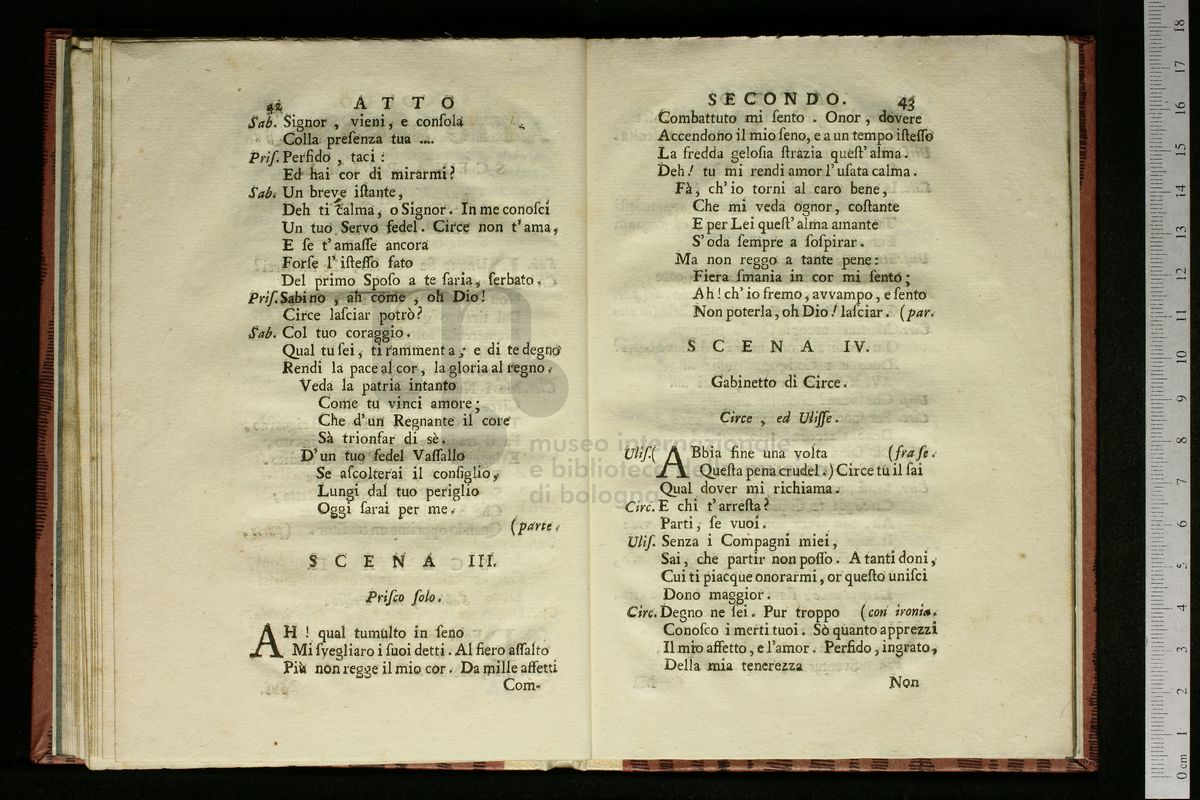 42 ATTO
Sab. Signor , vieni , e conſola
Colla preſenza tua ....
Priſ. Perfido , taci :
Ed hai cor di mirarmi?
Sab. Un breve iſtante,
Deh ti calma, o Signor. In me conoſci
Un tuo Servo fedel. Circe non t'ama,
E ſe t'amaſſe ancora
Forſe l'iſteſſo fato
Del primo Spoſo a te ſaria, ſerbato.
Priſ. Sabino , ah come , oh Dio!
Circe laſciar potrò?
Sab. Col tuo coraggio.
Qual tu ſei, ti rammenta; e di te degno
Rendi la pace al cor, la gloria al regno.
Veda la patria intanto
Come tu vinci amore;
Che d'un Regnante il core
Sà trionfar di sè.
D'un tuo fedel Vaſſallo
Se aſcolterai il conſiglio,
Lungi dal tuo periglio
Oggi ſarai per me.
(parte.
SCENA III.
Priſco ſolo.
AH ! qual tumulto in ſeno
Mi ſvegliaro i ſuoi detti. Al fiero aſſalto
Più non regge il mio cor. Da mille affetti
Com-
SECONDO. 43
Combattuto mi ſento . Onor , dovere
Accendono il mio ſeno, e a un tempo iſteſſo
La fredda geloſia ſtrazia queſt'alma.
Deh! tu mi rendi amor l'uſata calma.
Fà, ch'io torni al caro bene,
Che mi veda ognor, coſtante
E per Lei queſt'alma amante
S'oda ſempre a ſoſpirar.
Ma non reggo a tante pene:
Fiera ſmania in cor mi ſento;
Ah! ch'io fremo, avvampo, e ſento
Non poterla, oh Dio! laſciar. (par.
SCENA IV.
Gabinetto di Circe.
Circe , ed Uliſſe.
Uliſ. ( ABbia fine una volta (fra ſe.
Queſta pena crudel.) Circe tu il ſai
Qual dover mi richiama.
Circ. E chi t'arreſta?
Parti, ſe vuoi.
Uliſ. Senza i Compagni miei,
Sai, che partir non poſſo. A tanti doni,
Cui ti piacque onorarmi, or queſto uniſci
Dono maggior.
Circ. Degno ne ſei. Pur troppo (con ironia.
Conoſco i merti tuoi. Sò quanto apprezzi
Il mio affetto, e l'amor. Perfido, ingrato,
Della mia tenerezza
Non
museo internazionale
e biblioteca de
di bologna
0 cm 1 2 3 4 5 6 7 8 9 10 11 12 13 14 15 16 17 18